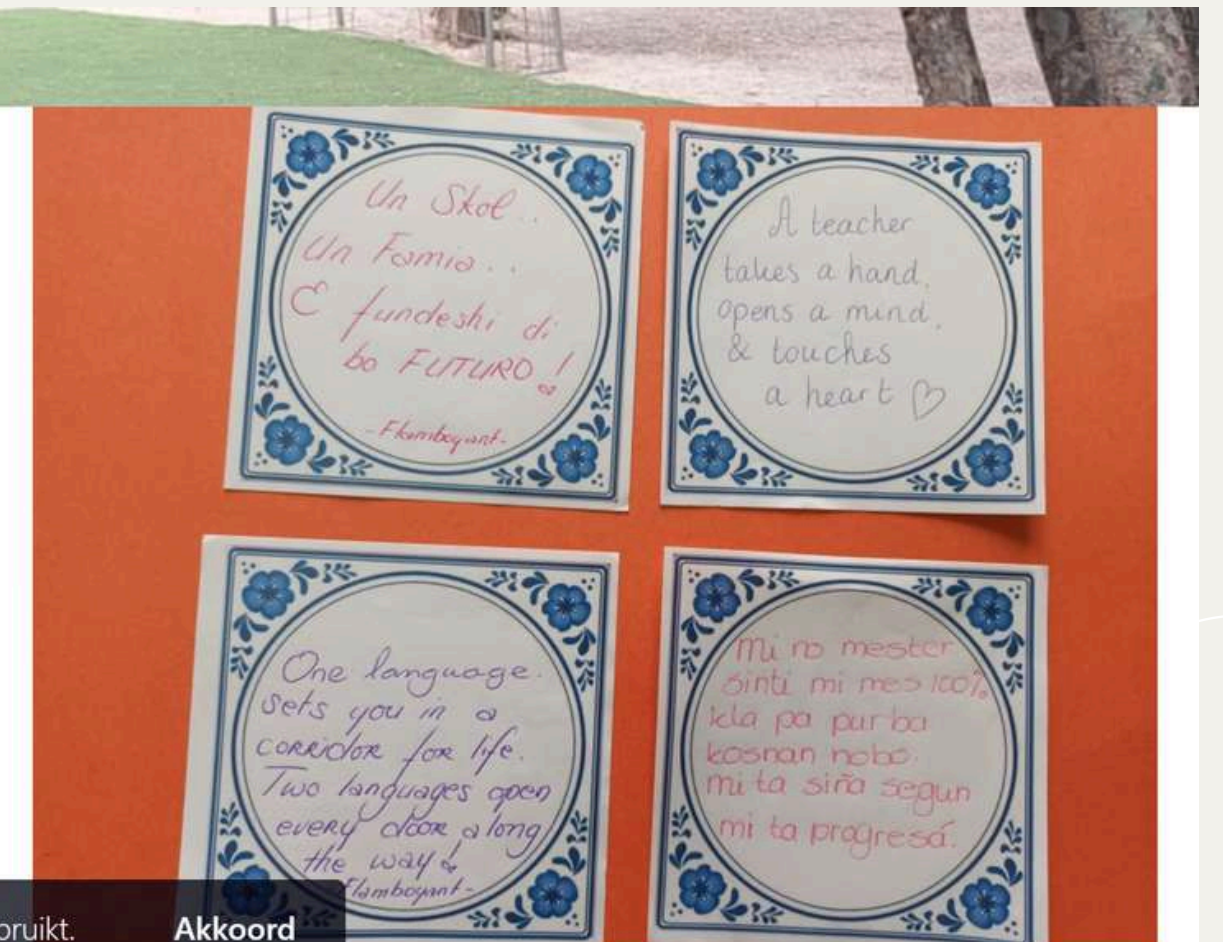 Un Skol..
Un Famia..
E fundeshi di
bo FUTURO!
-Flamboyant-
A teacher
takes a hand,
opens a mind,
& touches
a heart ♡
One language
sets you in a
corridor for life.
Two languages open
every door along
the way!
-Flamboyant-
Mi no mester
sinti mi mes 100%
kla pa purba
kosnan nobo.
mi ta siña segun
mi ta progresá.
Akkoord